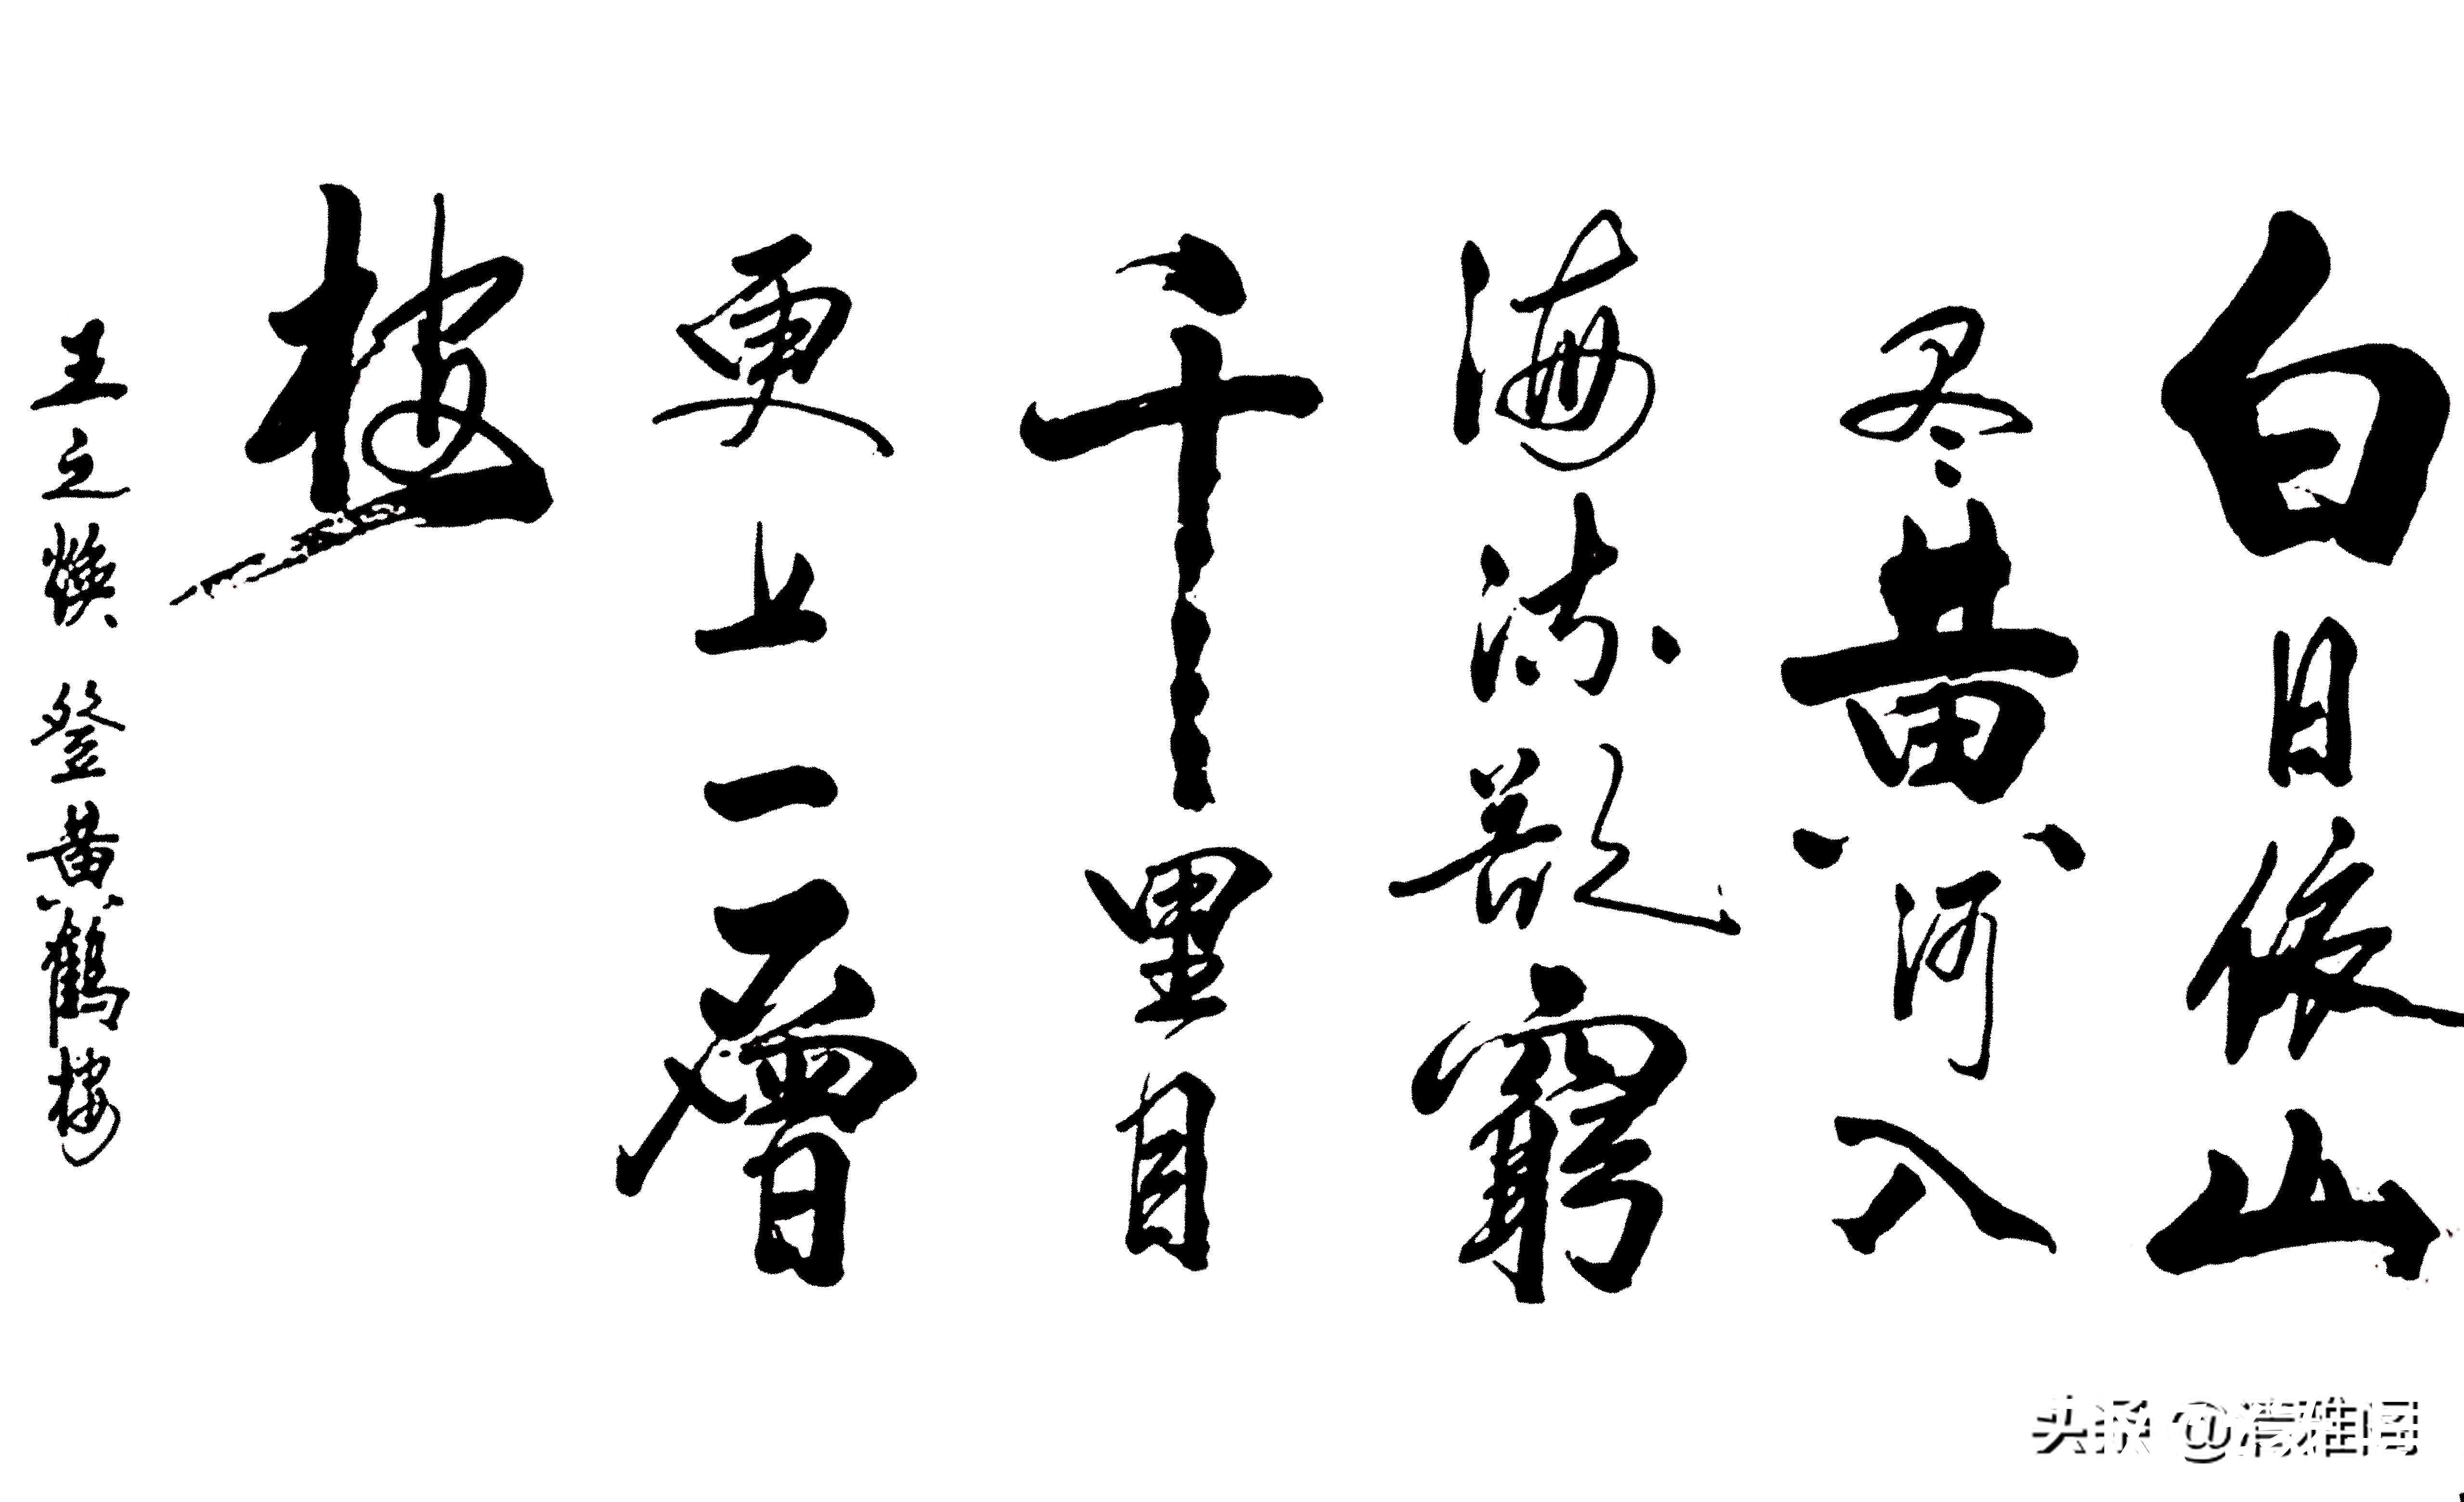 白日依山
尽黄河入
海流欲穷
千里目
更上一層
楼
王之焕 登黄鶴楼
头条 @清雅阁